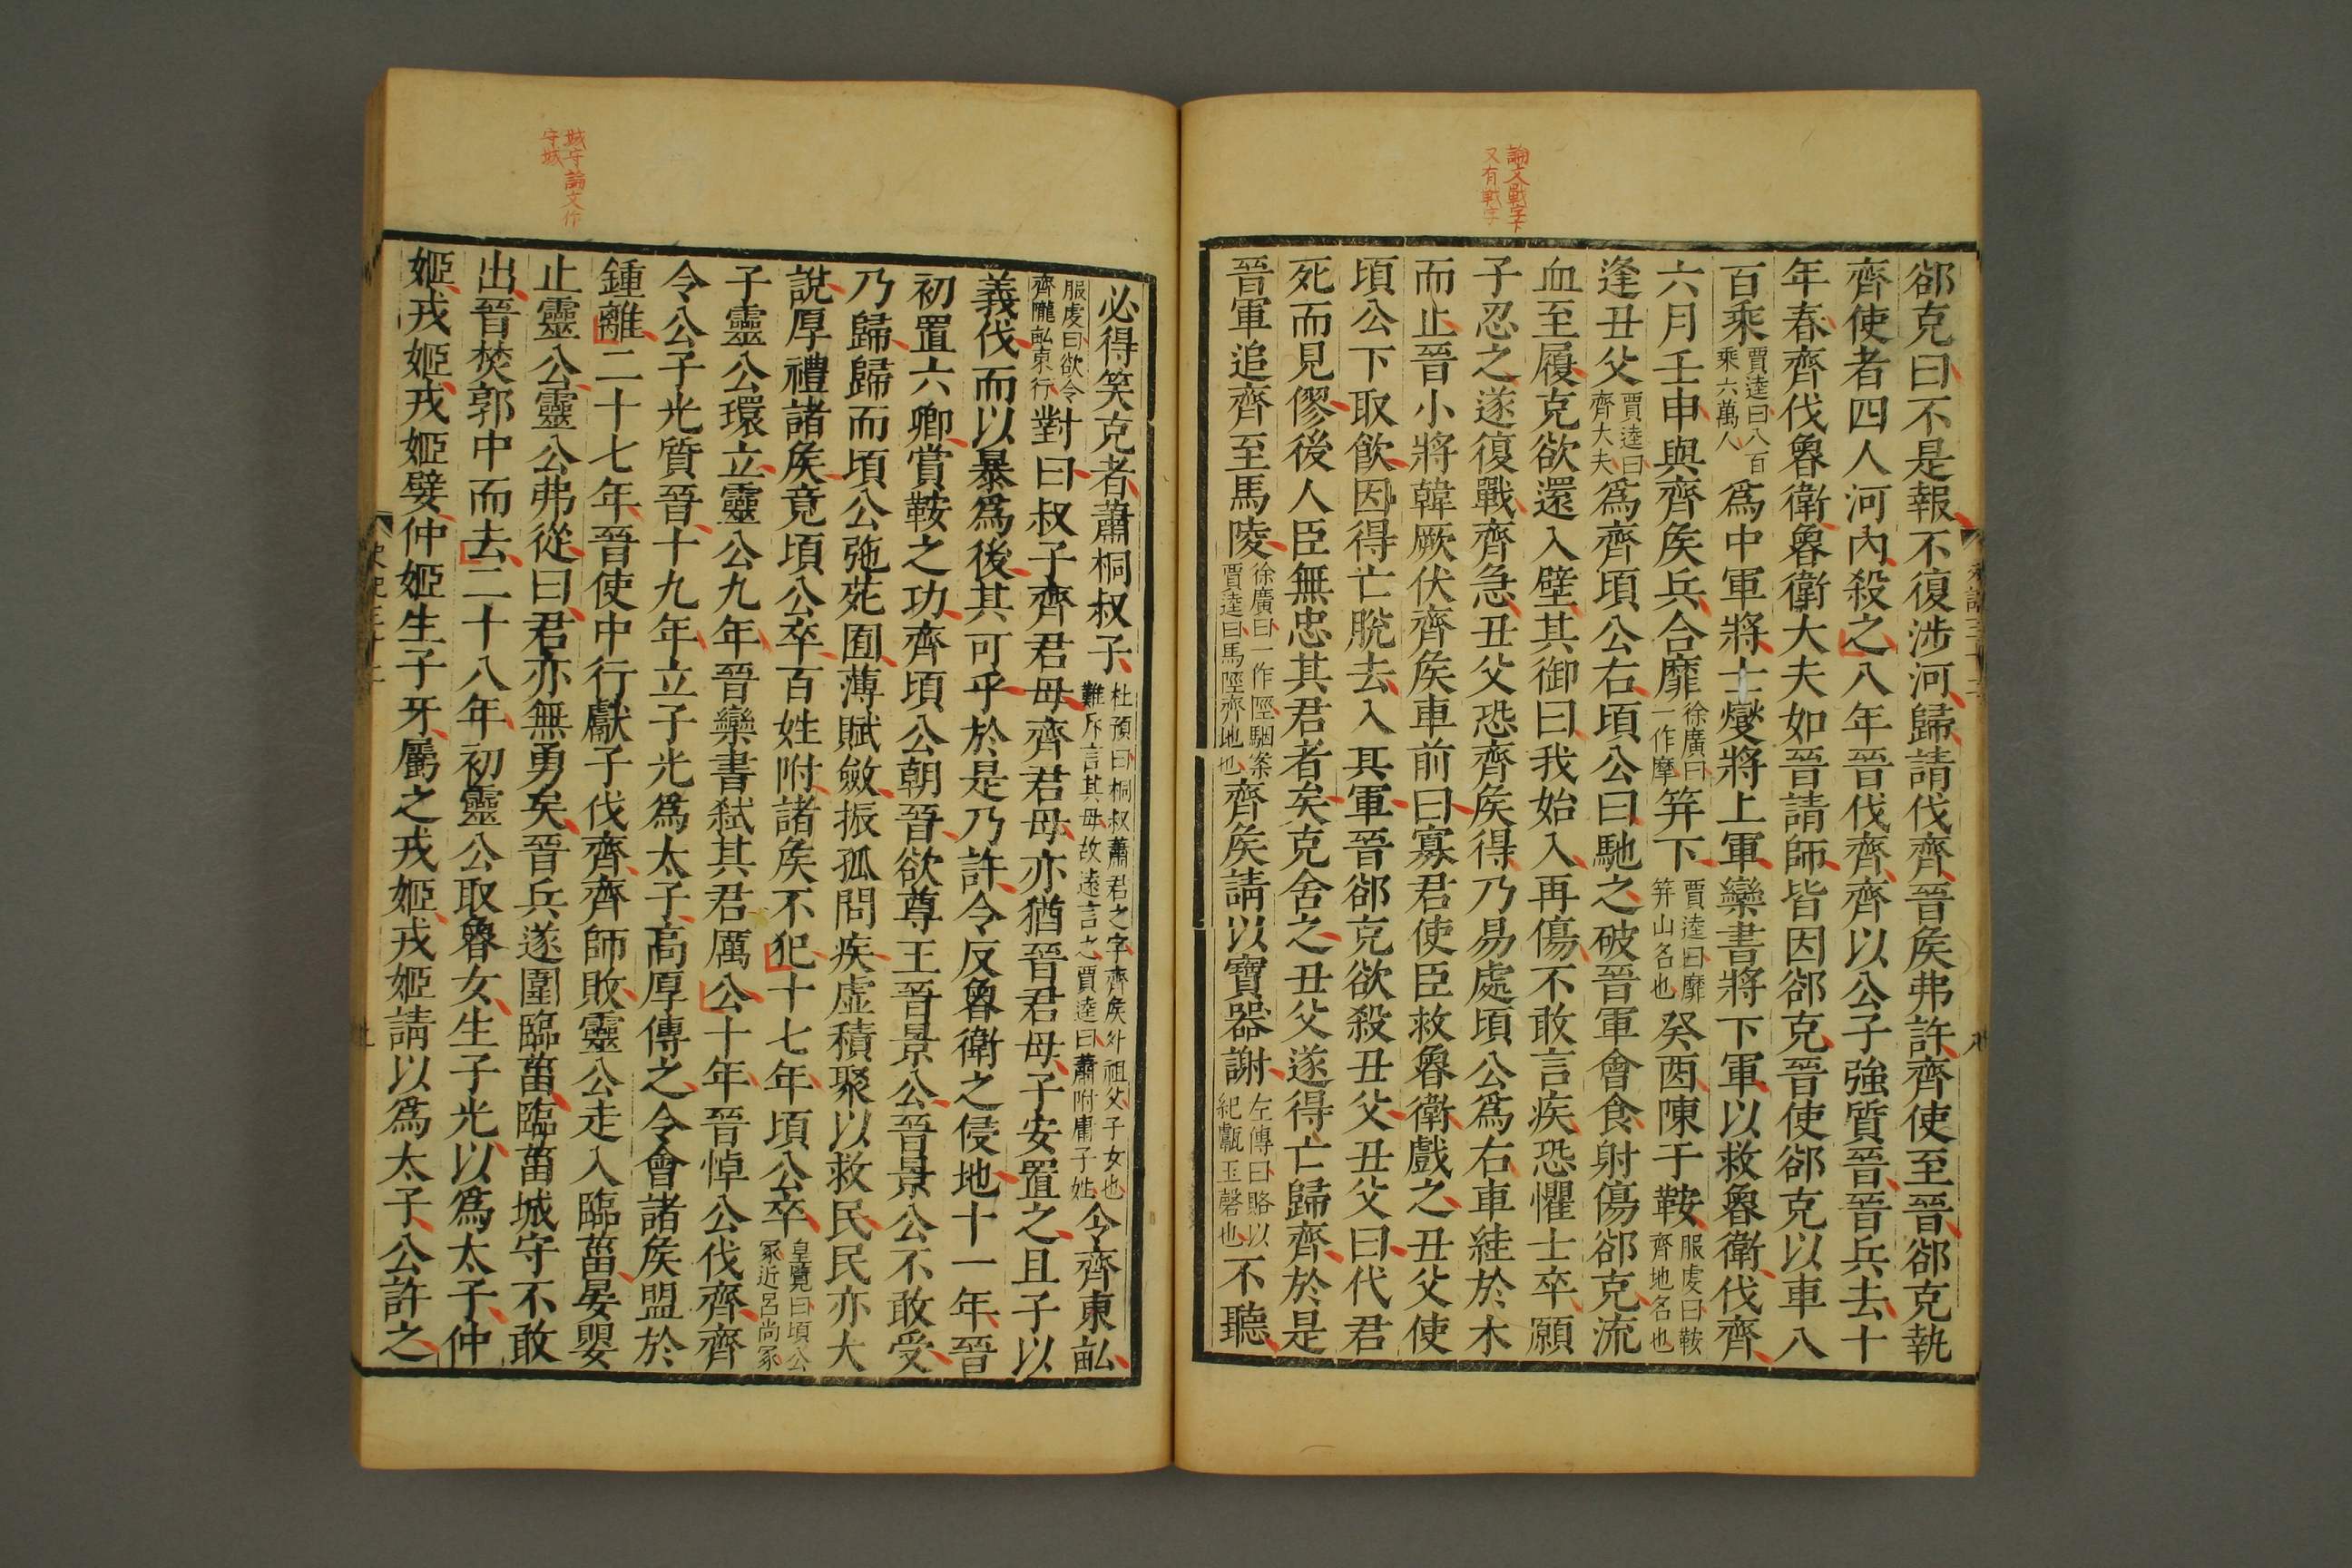 論文戰字下
又有戰字
郤克曰不是報不復涉河歸請伐齊晉矦弗許齊使至晉郤克執
齊使者四人河內殺之八年晉伐齊齊以公子強質晉晉兵去十
年春齊伐魯衛魯衛大夫如晉請師皆因郤克晉使郤克以車八
百乘賈逵曰八百乘六萬人爲中軍將士燮將上軍欒書將下軍以救魯衛伐齊
六月壬申與齊矦兵合靡徐廣曰一作摩笄下賈逵曰靡笄山名也癸酉陳于鞍服虔曰鞍齊地名也
逢丑父賈逵曰齊大夫爲齊頃公右頃公曰馳之破晉軍會食射傷郤克流
血至履克欲還入壁其御曰我始入再傷不敢言疾恐懼士卒願
子忍之遂復戰齊急丑父恐齊矦得乃易處頃公爲右車絓於木
而止晉小將韓厥伏齊矦車前曰寡君使臣救魯衛戲之丑父使
頃公下取飲因得亡脫去入其軍晉郤克欲殺丑父丑父曰代君
死而見僇後人臣無忠其君者矣克舍之丑父遂得亡歸齊於是
晉軍追齊至馬陵徐廣曰一作陘駰案賈逵曰馬陘齊地也齊矦請以寶器謝左傳曰賂以紀甗玉磬也不聽
城守論文作
守城
必得笑克者蕭桐叔子杜預曰桐叔蕭君之字齊矦外祖父子女也難斥言其母故遠言之賈逵曰蕭附庸子姓令齊東畝
服虔曰欲令齊隴畝東行對曰叔子齊君母齊君母亦猶晉君母子安置之且子以
義伐而以暴爲後其可乎於是乃許令反魯衛之侵地十一年晉
初置六卿賞鞍之功齊頃公朝晉欲尊王晉景公晉景公不敢受
乃歸歸而頃公弛苑囿薄賦斂振孤問疾虛積聚以救民民亦大
說厚禮諸矦竟頃公卒百姓附諸矦不犯十七年頃公卒皇覽曰頃公冢近呂尚冢
子靈公環立靈公九年晉欒書弒其君厲公十年晉悼公伐齊齊
令公子光質晉十九年立子光爲太子高厚傅之令會諸矦盟於
鍾離二十七年晉使中行獻子伐齊齊師敗靈公走入臨菑晏嬰
止靈公靈公弗從曰君亦無勇矣晉兵遂圍臨菑臨菑城守不敢
出晉焚郭中而去二十八年初靈公取魯女生子光以爲太子仲
姬戎姬戎姬嬖仲姬生子牙屬之戎姬戎姬請以爲太子公許之